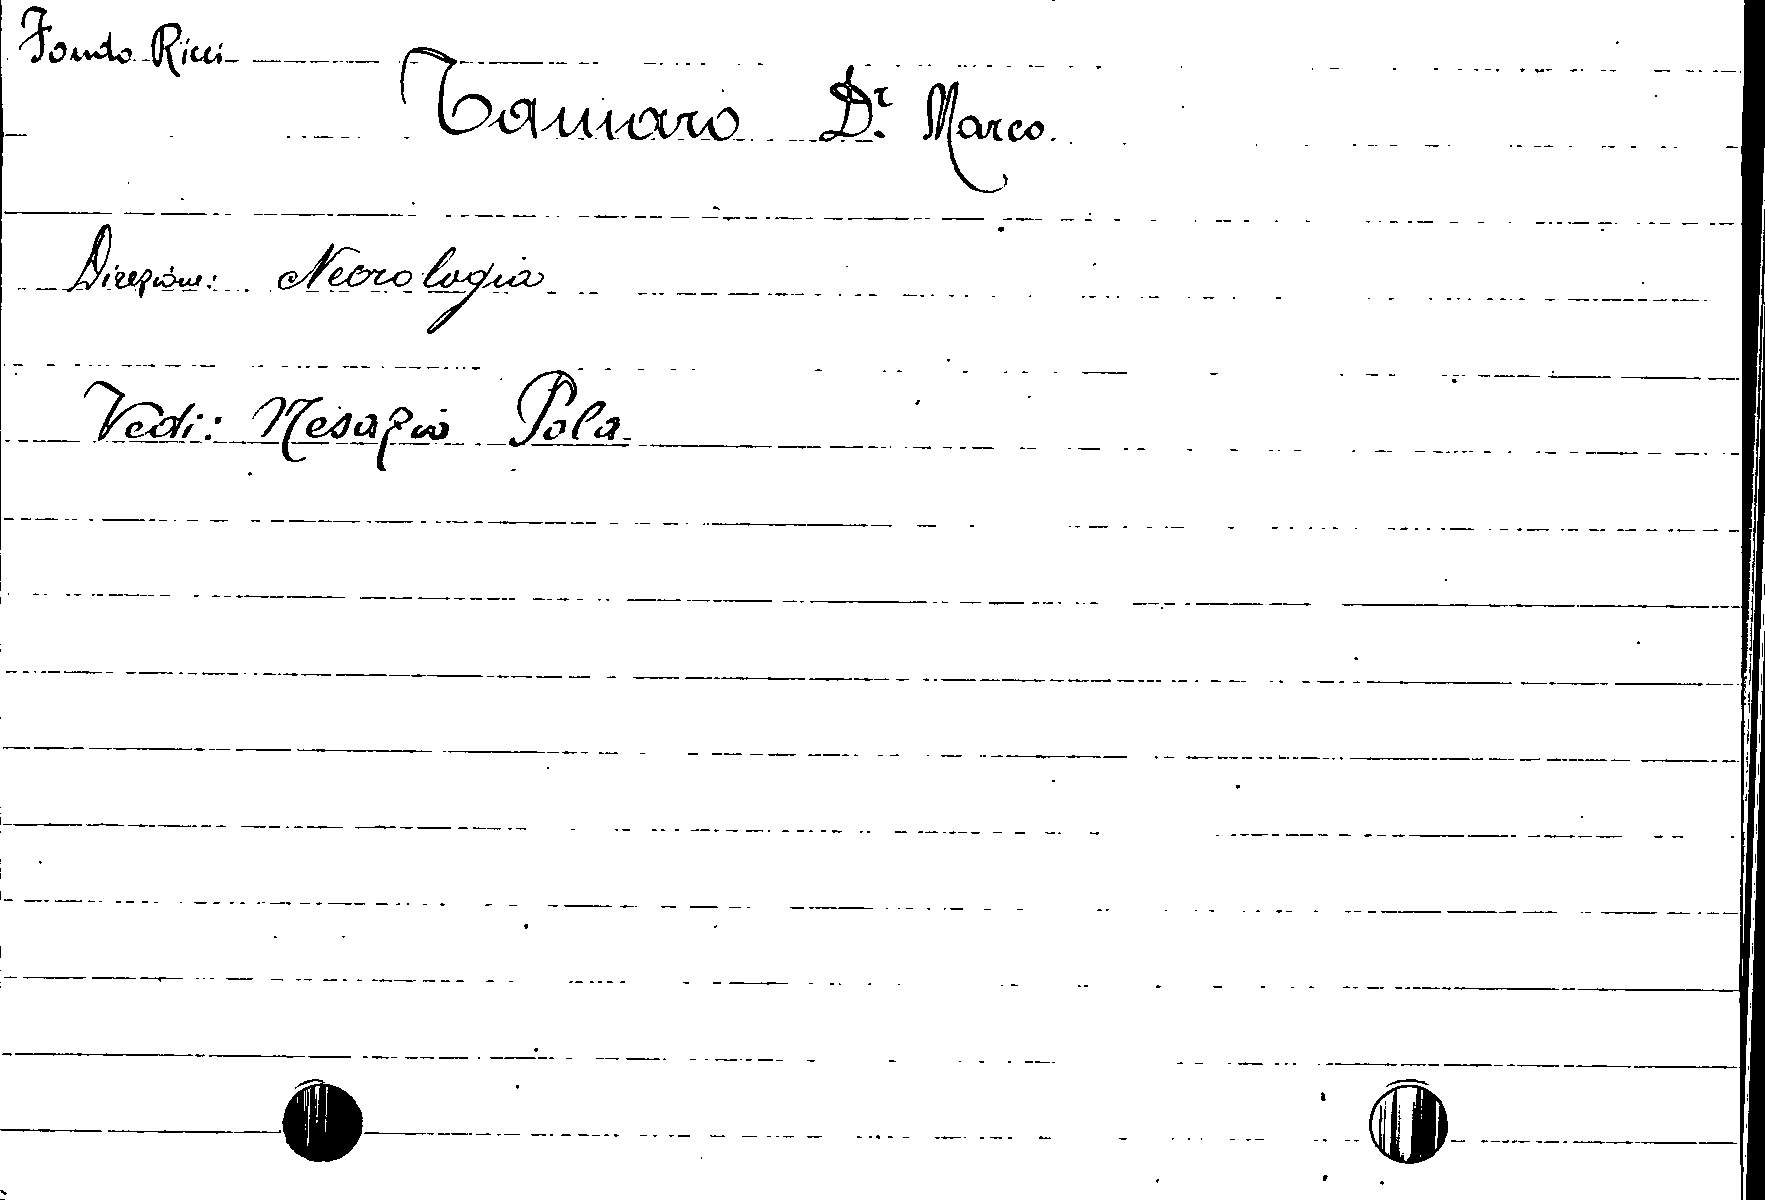 Fondo Ricci
Tamaro Dr. Marco.
Direzione: Necrologia
Vedi: Nesazio Pola